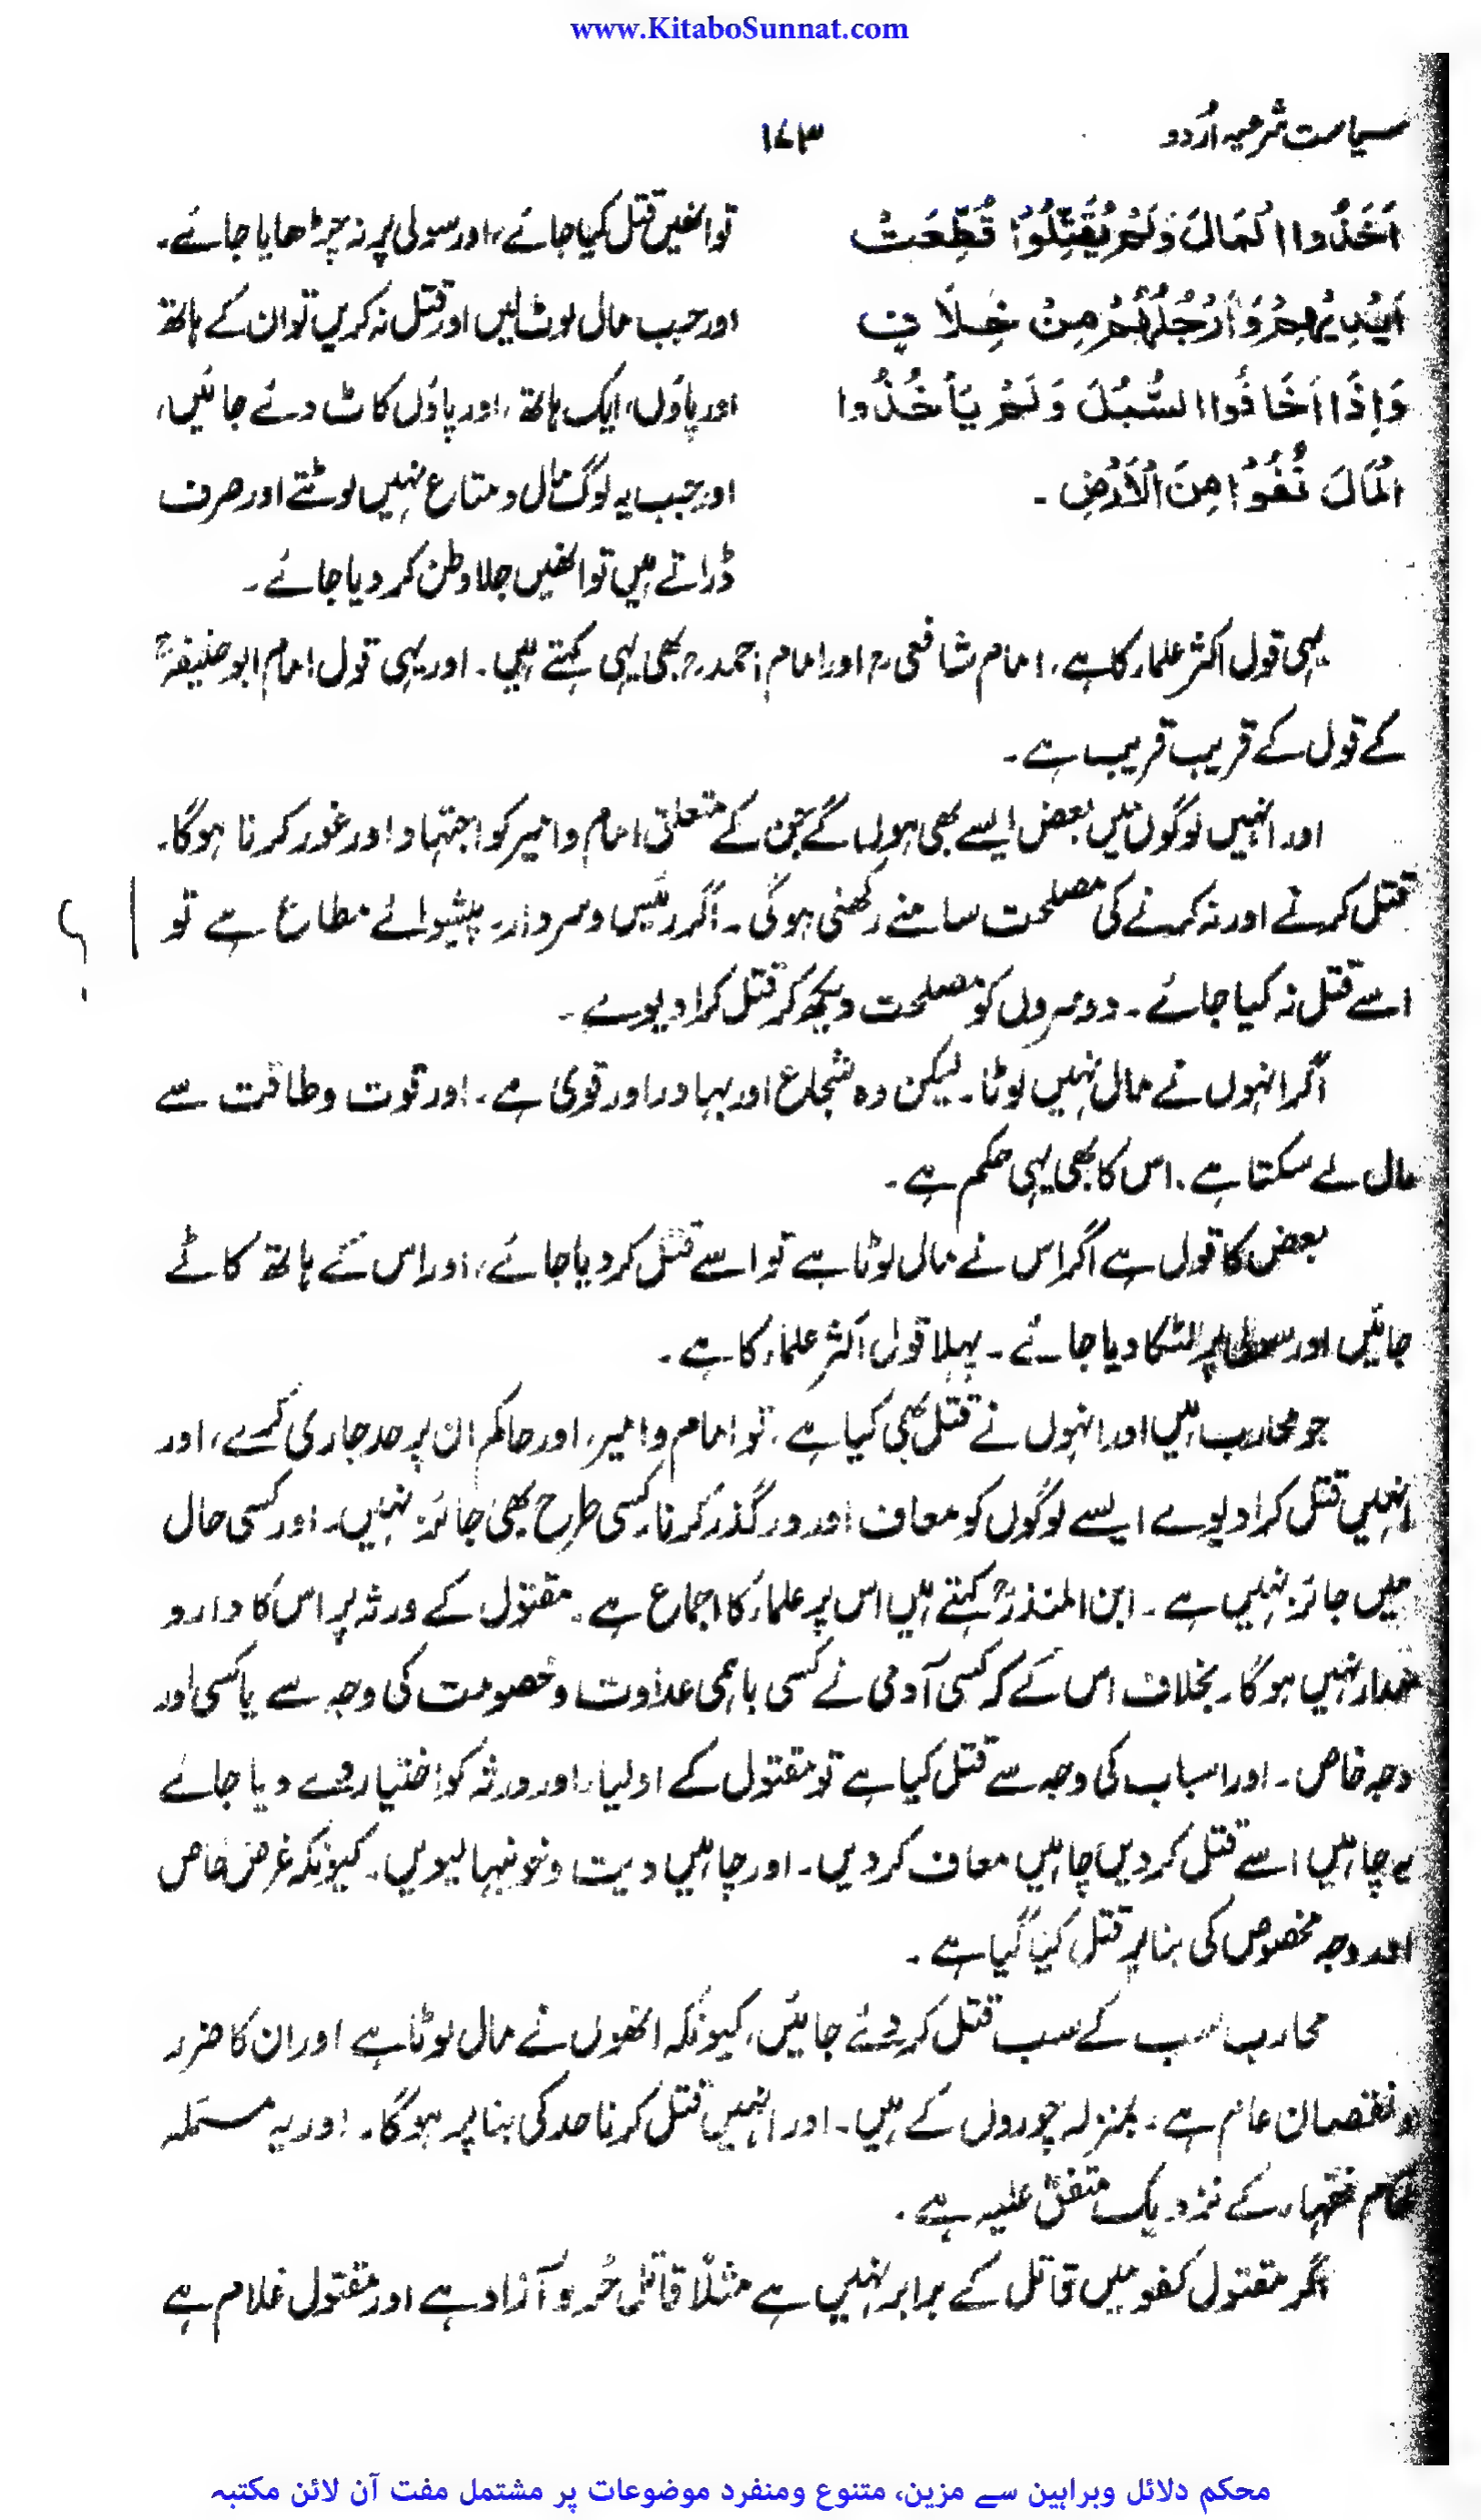 www.KitaboSunnat.com
سیاست شرعیہ اُردو
۱۷۳
اَخَذُوا الْمَالَ وَلَمْ يُقَتِّلُوْا قُطِّعَتْ
اَيْدِيْهِمْ وَاَرْجُلُهُمْ مِنْ خِلَافٍ
وَاِذَا اَخَافُوا السُّبُلَ وَلَمْ يَأْخُذُوا
الْمَالَ نُفُوْا مِنَ الْاَرْضِ ۔
توانھیں قتل کیا جائے، اور سولی پر نہ چڑھایا جائے۔
اور جب مال لوٹ لیں اور قتل نہ کریں تو ان کے ہاتھ
اور پاؤں، ایک ہاتھ، اور پاؤں کاٹ دئے جائیں،
اور جب یہ لوگ مال و متاع نہیں لوٹتے اور صرف
ڈراتے ہیں تو انھیں جلا وطن کر دیا جائے۔
یہی قول اکثر علماء کا ہے، امام شافعی رح اور امام احمد رح بھی یہی کہتے ہیں۔ اور یہی قول امام ابو حنیفہؒ
کے قول کے قریب قریب ہے۔
اور انہیں لوگوں میں بعض ایسے بھی ہوں گے جن کے متعلق امام و امیر کو اجتہاد اور غور کرنا ہوگا۔
قتل کرنے اور نہ کرنے کی مصلحت سامنے رکھنی ہوگی۔ اگر رئیس و سردار، پیشوائے مطاع ہے تو
اسے قتل نہ کیا جائے۔ دوسروں کو مصلحت دیکھ کر قتل کرا دیوے۔
اگر انہوں نے مال نہیں لوٹا۔ لیکن وہ شجاع اور بہادر اور قوی ہے۔ اور قوت و طاقت سے
مال لے سکتا ہے۔ اس کا بھی یہی حکم ہے۔
بعض کا قول ہے اگر اس نے مال لوٹا ہے تو اسے قتل کر دیا جائے، اور اس کے ہاتھ کاٹے
جائیں اور سولی پر لٹکا دیا جائے۔ پہلا قول اکثر علماء کا ہے۔
جو محارب ہیں اور انہوں نے قتل بھی کیا ہے، تو امام و امیر، اور حاکم ان پر حد جاری کرے، اور
انہیں قتل کرا دیوے ایسے لوگوں کو معاف اور درگذر کرنا کسی طرح بھی جائز نہیں۔ اور کسی حال
میں جائز نہیں ہے۔ ابن المنذرؒ کہتے ہیں اس پر علماء کا اجماع ہے۔ مقتول کے ورثہ پر اس کا دارو
مدار نہیں ہوگا۔ بخلاف اس کے کہ کسی آدمی نے کسی باہمی عداوت و خصومت کی وجہ سے یا کسی اور
وجہ خاص۔ اور اسباب کی وجہ سے قتل کیا ہے تو مقتول کے اولیاء اور ورثہ کو اختیار دے دیا جائے
چاہیں اسے قتل کر دیں چاہیں معاف کر دیں۔ اور چاہیں دیت و خونبہا لیویں۔ کیونکہ غرض خاص
اور وجہ مخصوص کی بنا پر قتل کیا گیا ہے۔
محارب سب کے سب قتل کر دئے جائیں، کیونکہ انھوں نے مال لوٹا ہے اور ان کا ضرر
و نقصان عام ہے۔ بمنزلہ چوروں کے ہیں۔ اور انہیں قتل کرنا حد کی بنا پر ہوگا۔ اور یہ مسئلہ
تمام فقہاء کے نزدیک متفق علیہ ہے۔
اگر مقتول کفو میں قاتل کے برابر نہیں ہے مثلاً قاتل حُر و آزاد ہے اور مقتول غلام ہے
محکم دلائل وبراہین سے مزین، متنوع ومنفرد موضوعات پر مشتمل مفت آن لائن مکتبہ